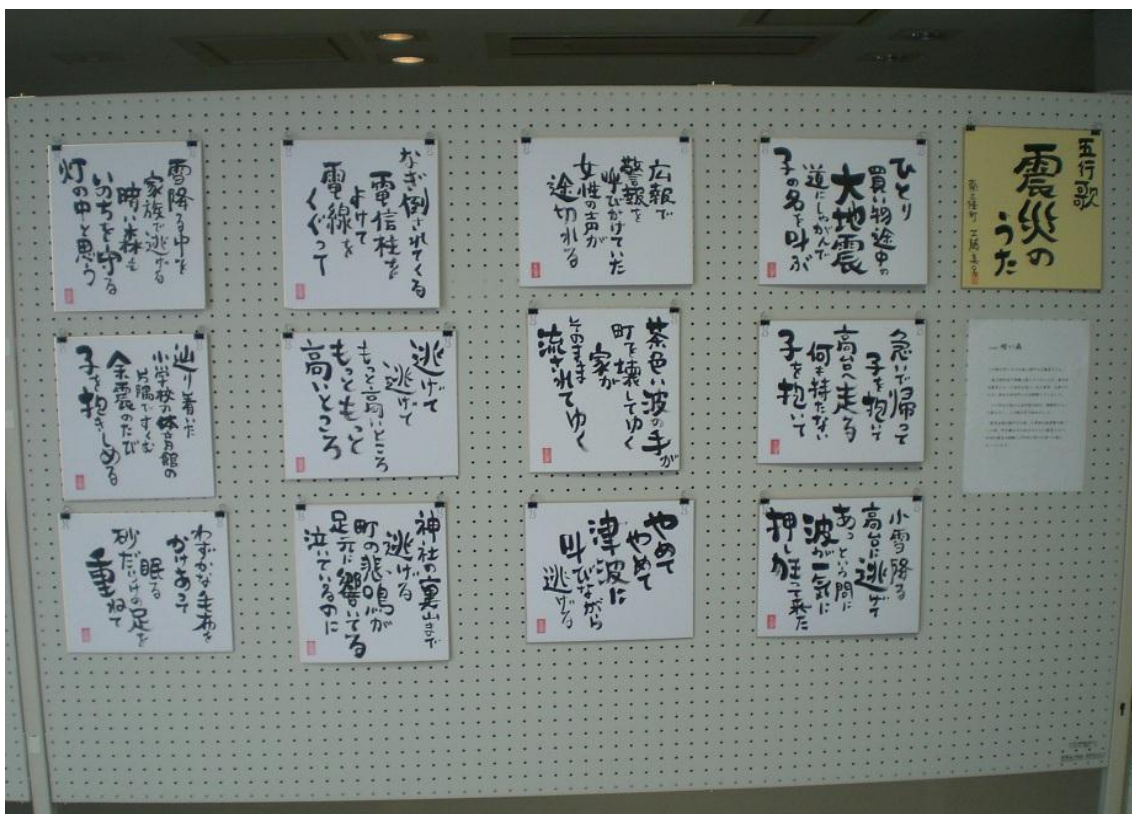 五行歌
震災の
うた
南三陸町 工藤真弓
ひとり
買い物途中の
大地震
道にしゃがんで
子の名を叫ぶ
急いで帰って
子を抱いて
高台へ走る
何も持たない
子を抱いて
小雪降る
高台に逃げて
あっという間に
波が一気に
押し って来た
広報で
警報を
呼びかけていた
女性の声が
途切れる
茶色い波の手が
町を壊してゆく
家が
そのまま
流されてゆく
やめて
やめて
津波に
叫びながら
逃げる
なぎ倒されてくる
電信柱を
よけて
電線を
くぐって
逃げて
逃げて
もっと高いところ
もっともっと
高いところ
神社の裏山まで
逃げる
町の悲鳴が
足元に響いてる
泣いているのに
雪降る中を
家族で逃げる
暗い森も
いのちを守る
灯の中と思う
辿り着いた
小学校の体育館の
片隅ですくむ
余震のたび
子を抱きしめる
わずかな毛布を
かけあって
眠る
砂だらけの足を
重ねて